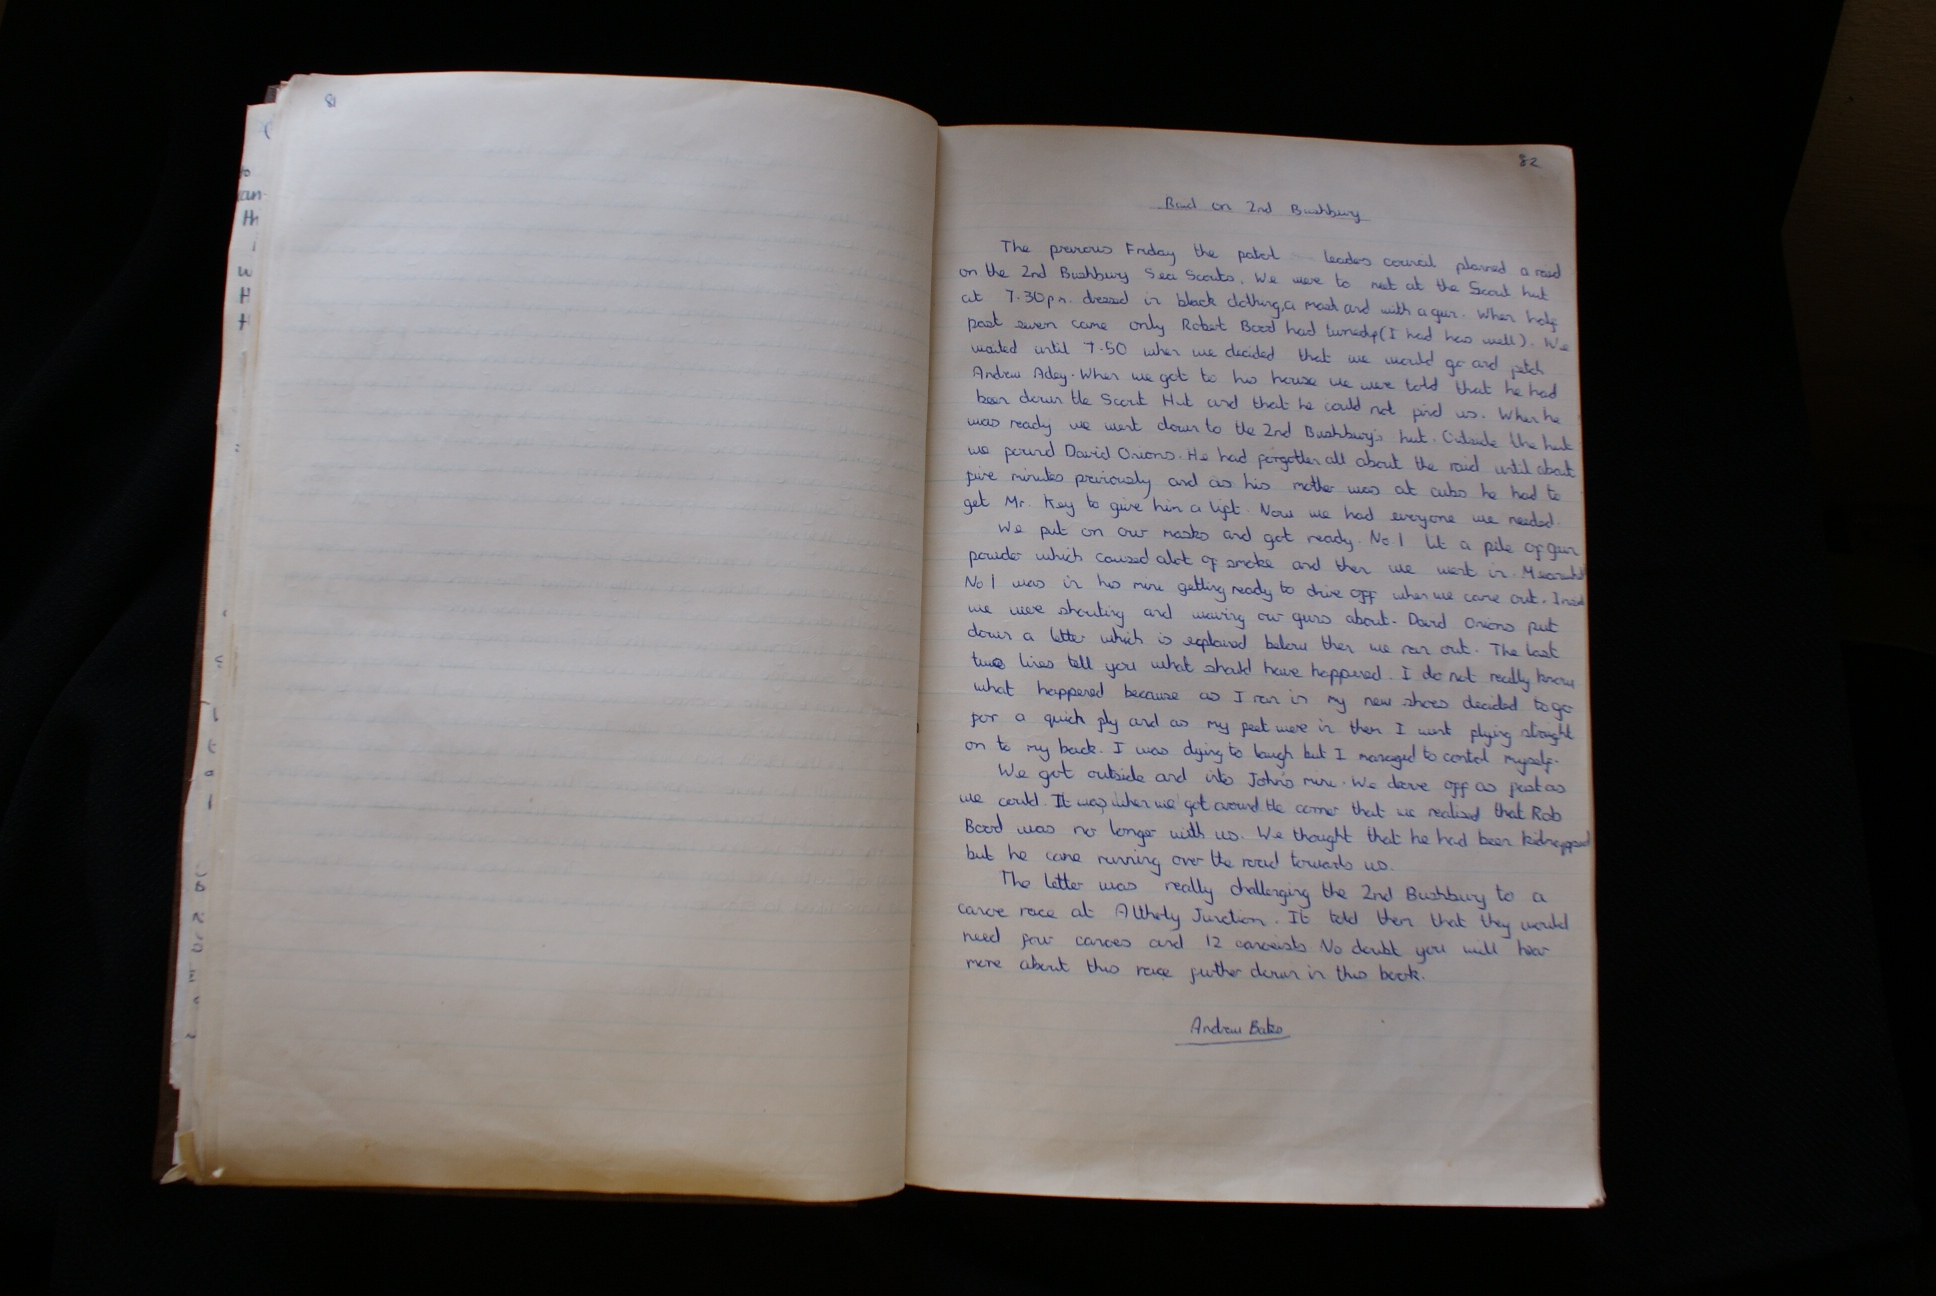 81
82
Raid on 2nd Bushbury
The previous Friday the patrol leaders council planned a raid
on the 2nd Bushbury Sea Scouts. We were to met at the Scout hut
at 7.30p.m. dressed in black clothing, a mask and with a gun. When half
past seven came only Robert Bood had turned up (I had has well). We
waited until 7.50 when we decided that we would go and fetch
Andrew Adey. When we got to his house we were told that he had
been down the Scout Hut and that he could not find us. When he
was ready we went down to the 2nd Bushbury's hut. Outside the hut
we found David Onions. He had forgotten all about the raid until about
five minutes previously and as his mother was at cubs he had to
get Mr. Key to give him a lift. Now we had everyone we needed.
We put on our masks and got ready. No.1 lit a pile of gun
powder which caused alot of smoke and then we went in. Meanwhile
No 1 was in his mini getting ready to drive off when we came out. Inside
we were shouting and waving our guns about. David Onions put
down a letter which is explained below then we ran out. The last
two lines tell you what should have happened. I do not really know
what happened because as I ran in my new shoes decided to go
for a quick fly and as my feet were in them I went flying straight
on to my back. I was dying to laugh but I managed to control myself.
We got outside and into John's mini. We drove off as fast as
we could. It was when we got around the corner that we realised that Rob
Bood was no longer with us. We thought that he had been kidnapped
but he came running over the road towards us.
The letter was really challenging the 2nd Bushbury to a
canoe race at Junction. It told them that they would
need four canoes and 12 canoeists No doubt you will hear
more about this race further down in this book.
Andrew Bates